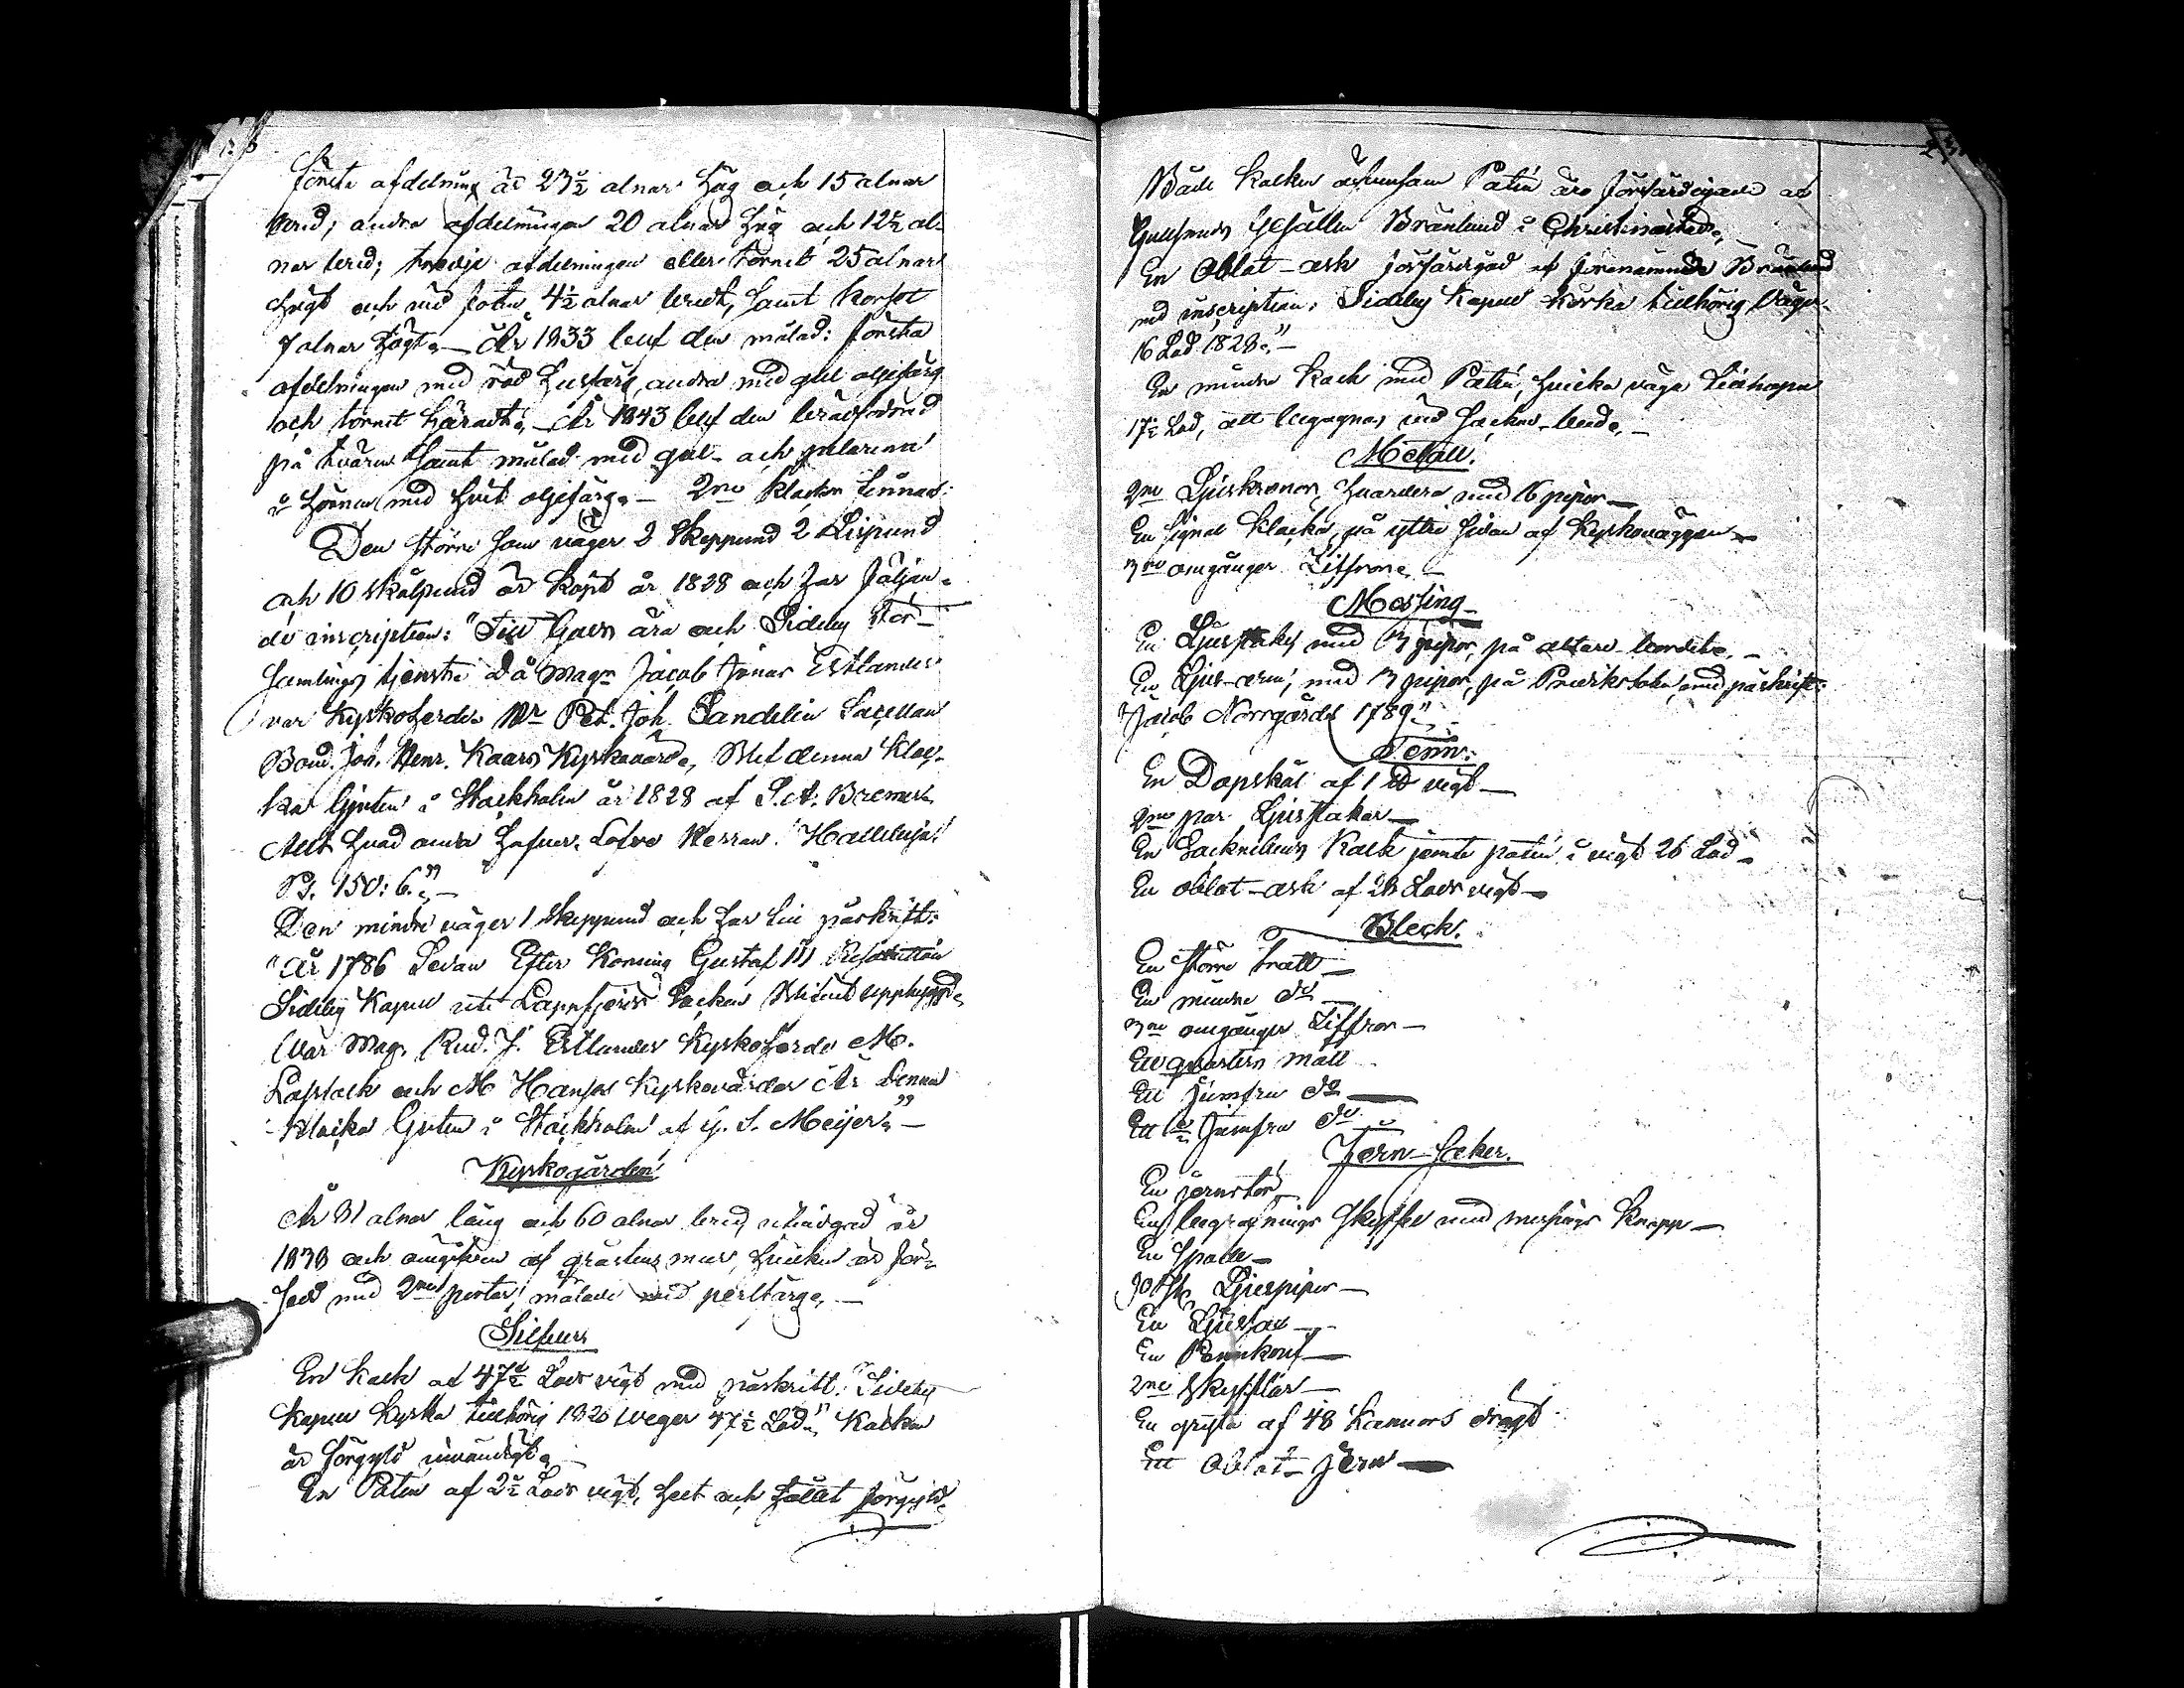 första afdelning är 23½ alnar hög och 15 alnar
bred; andra afdelningen 20 alnar hög och 12½ al-
nar bred; tredje afdelningen eller tornet 25 alnar
högt och vid foten 4½ alnar bredt, samt korset
7 alnar högt. — År 1833 blef den målad: första
afdelningen med röd husfärg, andra med gul oljefärg
och tornet tjäradt. — År 1843 blef den brädfodrad
på tvären samt målad med gul- och pelarena
i hörnen med hvit oljefärg. — 2ne klockor finnas:
Den större som väger 2 Skeppund 2 Lispund
och 10 skålpund är köpt år 1828 och har följan-
de inscription: "Till Guds ära och Sideby För-
samlings tjenst då Magr Jacob Jonas Estlander
var Kyrkoherde Mr Pet. Joh. Sandelin Sacellan
Bond. Joh. Henr. Kaars Kyrkovärd, Blef denna Kloc-
ka Gjuten i Stockholm år 1828 af S. A. Bremer.
Allt hvad anda hafver, Lofve Herran! Halleluja!
Ps. 150: 6." —
Den mindre väger 1 Skeppund och har till påskrift:
"År 1786 Sedan Efter Konung Gustaf III Resolution
Sideby Kapell uti Lappfjerds Socken blifvit uppbygd.
Var Mag. Rud. J. Estlander Kyrkoherde M.
Lassask och M Hansas Kyrkovärdar Är Denna
Klocka Gjuten i Stockholm af G. S. Meijer" —
Kyrkogården
Är 81 alnar lång och 60 alnar bred, utvidgad år
1838 och omgifven af gråstens mur, hvilken är för-
sedd med 2ne portar, målade med perlfärg. —
Silfver
En kalk af 47½ Lods vigt med påskrift: "Sideby
Kapell Kyrka tillhörig 1820 weger 47½ Lod" Kalken
är förgyld invändigt.
En Patén af 2½ Lods vigt, helt och hållet förgyld.
Både kalken äfvensom Patén äro förfärdigade af
Guldsmeds Gesällen Brånlund i Christinæstad.
En Oblat-ask förfärdigad af förenämnde Brånlund
med inscription: Sideby Kapell kyrka tillhörig Väger
16 Lod 1828." —
En mindre kalk med Patén, hvilka väga tillhopa
17½ Lod, att begagnas vid sockne-bud. —
Metall.
2ne Ljuskronor, hvardera med 16 pipor —
En Signal klocka, på yttre sidan af Kyrkoväggen —
3ne omgångar Ziffror. —
Messing
En Ljusstake med 3 pipor, på altare bordet. —
En Ljus-arm, med 3 pipor, på Predikstolen, med påskrift:
"Jacob Norrgård 1789."
Tenn.
En Dopskål af 1 ℔ vigt —
2ne par Ljusstakar —
En Socknebuds Kalk jemte patén i vigt 26 Lod —
En oblat-ask af 23 Lods vigt —
Bleck.
En större Tratt —
En mindre do —
3ne omgångar Ziffror —
Ett qvarters mått
Ett jumfru do —
Ett ½ jumfru do
Jern-Saker.
En jernstör —
En begrafnings Skyffel med messings Knapp —
En Spade —
30 St. Ljuspipor —
En Ljussax —
En
2ne Skyfflar —
En gryta af 48 Kannors drägt
Ett Oblat-Jern —